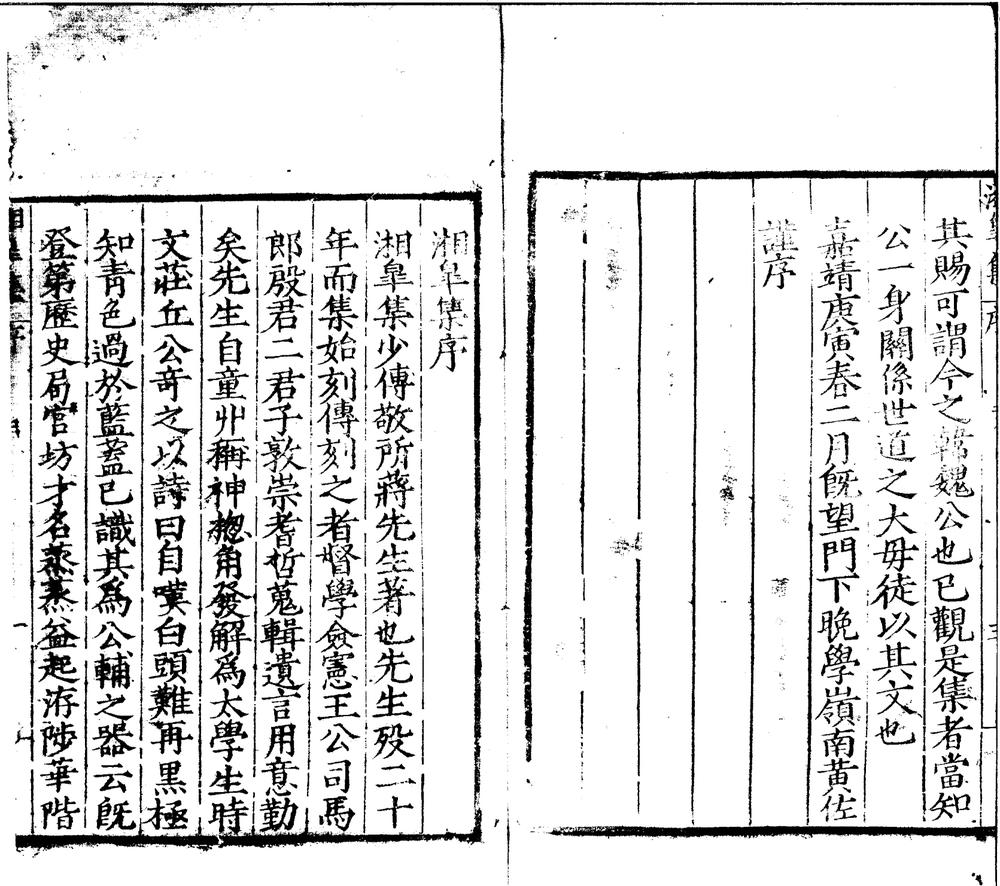 其賜可謂今之韓魏公也已觀是集者當知
公一身關係世道之大毋徒以其文也
嘉靖庚寅春二月旣望門下晚學嶺南黃佐
謹序
湘皐集序
湘皐集少傅敬所蔣先生著也先生歿二十
年而集始刻傳刻之者督學僉憲王公司馬
郎殷君二君子敦崇耆哲蒐輯遺言用意勤
矣先生自童丱稱神摠角發解爲太學生時
文莊丘公奇之以詩曰自嘆白頭難再黑極
知靑色過於藍蓋已識其爲公輔之器云旣
登第歷史局宮坊才名蒸蒸益起洊陟華階